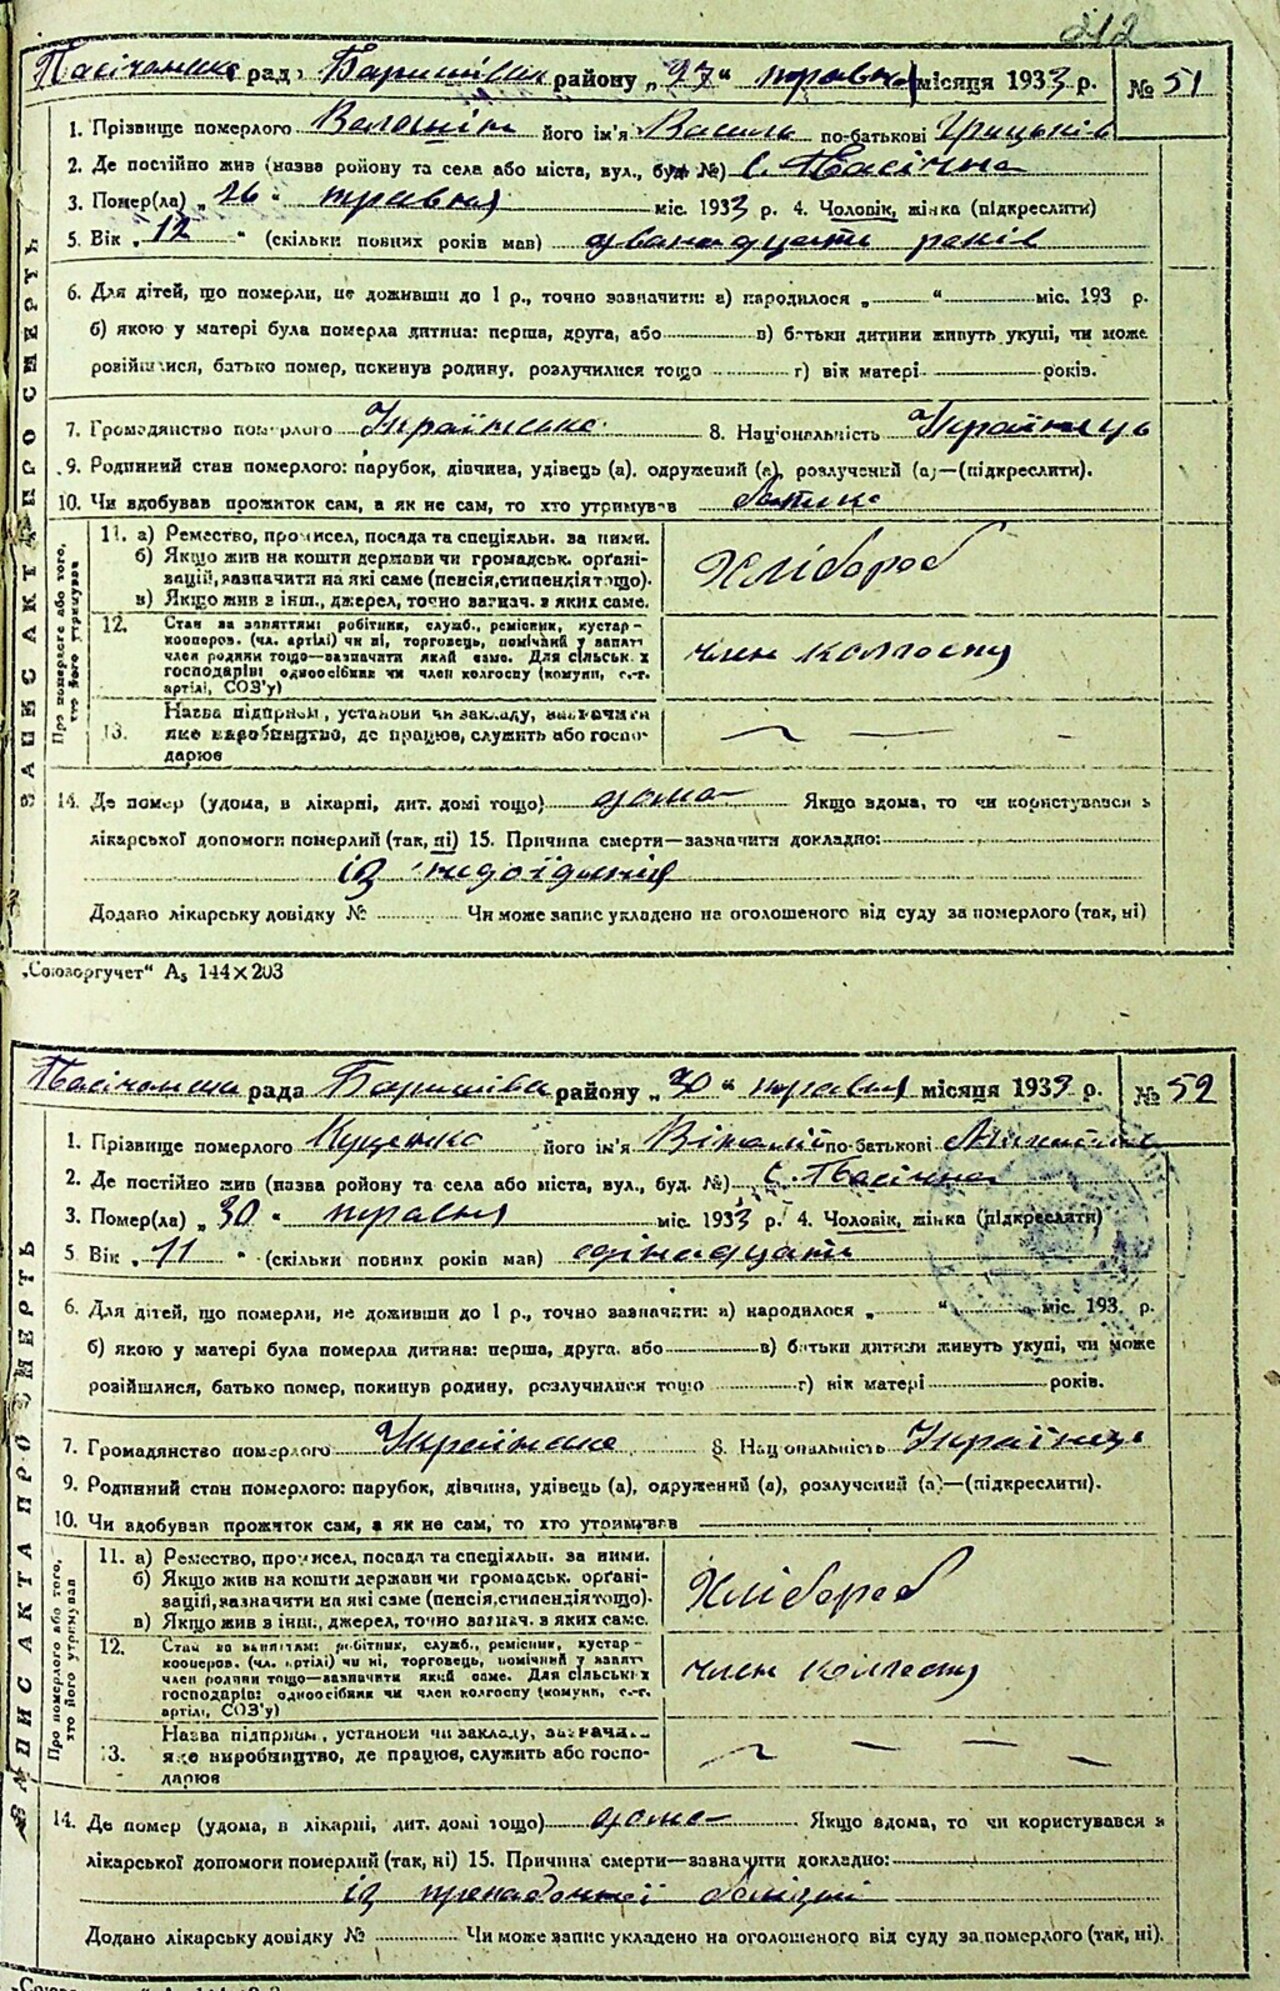 212
рад Баришівськ району „27“ травня місяця 1933 р. № 51
1. Прізвище померлого Волошін його ім'я Василь по-батькові Грицьків
2. Де постійно жив (назва ройону та села або міста, вул., буд. №) с. Пасічна
3. Помер(ла) „26“ травня міс. 1933 р. 4. Чоловік, жінка (підкреслити)
5. Вік „12“ (скільки повних років мав) дванадцать років
6. Для дітей, що померли, не доживши до 1 р., точно зазначити: а) народилося „ “ міс. 193 р.
б) якою у матері була померла дитина: перша, друга, або в) батьки дитини живуть укупі, чи може
розійшлися, батько помер, покинув родину, розлучилися тощо г) вік матері років.
7. Громадянство померлого Українське 8. Національність Українець
9. Родинний стан померлого: парубок, дівчина, удівець (а). одружений (а), розлучений (а)—(підкреслити).
10. Чи здобував прожиток сам, а як не сам, то хто утримував батько
ЗАПИС АКТА ПРО СМЕРТЬ
Про померлого або того, хто його утримував
11. а) Ремество, промисел, посада та спеціяльн. за ними.
б) Якщо жив на кошти держави чи громадськ. орґані-
зацій, зазначити на які саме (пенсія, стипендія тощо).
в) Якщо жив з інш., джерел, точно зазнач. з яких саме.
Хлібороб
12. Стан за заняттям: робітник, служб., ремісник, кустар-
кооперов. (чл. артілі) чи ні, торговець, помічний у занят.
член родини тощо—зазначити який саме. Для сільських
господарів: одноосібник чи член колгоспу (комуни, с.-г.
артілі, СОЗ'у)
член колгоспу
13. Назва підприєм., установи чи закладу, зазначити
яке виробництво, де працює, служить або госпо-
дарює
14. Де помер (удома, в лікарні, дит. домі тощо) дома Якщо вдома, то чи користувався з
лікарської допомоги померлий (так, ні) 15. Причина смерти—зазначити докладно:
із недоїданія
Додано лікарську довідку № Чи може запис укладено на оголошеного від суду за померлого (так, ні)
„Союзоргучет“ А5 144×203
рада Баришівськ району „30“ травня місяця 1933 р. № 52
1. Прізвище померлого Куценко його ім'я Віталій по-батькові
2. Де постійно жив (назва ройону та села або міста, вул., буд. №) с. Пасічна
3. Помер(ла) „30“ травня міс. 1933 р. 4. Чоловік, жінка (підкреслити)
5. Вік „11“ (скільки повних років мав) одінадцать
6. Для дітей, що померли, не доживши до 1 р., точно зазначити: а) народилося „ “ міс. 193 р.
б) якою у матері була померла дитина: перша, друга, або в) батьки дитини живуть укупі, чи може
розійшлися, батько помер, покинув родину, розлучилися тощо г) вік матері років.
7. Громадянство померлого Українське 8. Національність Українець
9. Родинний стан померлого: парубок, дівчина, удівець (а), одружений (а), розлучений (а)—(підкреслити).
10. Чи здобував прожиток сам, а як не сам, то хто утримував
ЗАПИС АКТА ПРО СМЕРТЬ
Про померлого або того, хто його утримував
11. а) Ремество, промисел, посада та спеціяльн. за ними.
б) Якщо жив на кошти держави чи громадськ. орґані-
зацій, зазначити на які саме (пенсія, стипендія тощо).
в) Якщо жив з інш., джерел, точно зазнач. з яких саме.
Хлібороб
12. Стан за заняттям: робітник, служб., ремісник, кустар-
кооперов. (чл. артілі) чи ні, торговець, помічний у занят.
член родини тощо—зазначити який саме. Для сільських
господарів: одноосібник чи член колгоспу (комуни, с.-г.
артілі, СОЗ'у)
член колгоспу
13. Назва підприєм., установи чи закладу, зазначи..
яке виробництво, де працює, служить або госпо-
дарює
14. Де помер (удома, в лікарні, дит. домі тощо) дома Якщо вдома, то чи користувався з
лікарської допомоги померлий (так, ні) 15. Причина смерти—зазначити докладно:
із
Додано лікарську довідку № Чи може запис укладено на оголошеного від суду за померлого (так, ні).